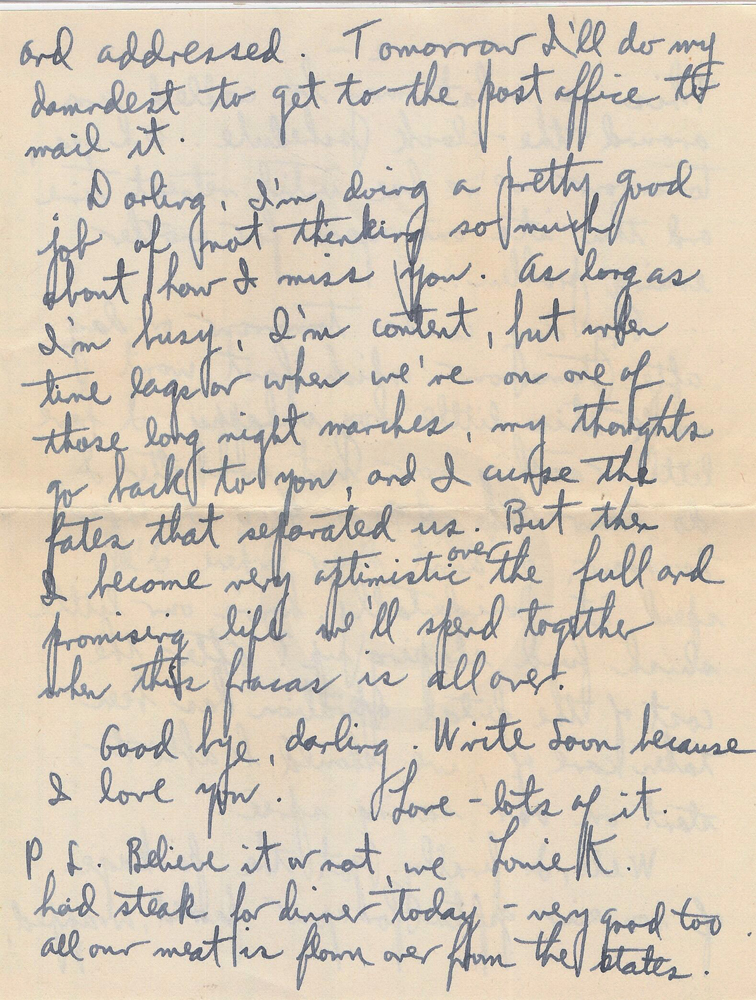 and addressed. Tomorrow I'll do my
damndest to get to the post office to
mail it.
Darling, I'm doing a pretty good
job of not thinking so much
about how I miss you. As long as
I'm busy, I'm content, but when
time lags or when we're on one of
those long night marches, my thoughts
go back to you, and I curse the
fates that separated us. But then
I become very optimistic over the full and
promising life we'll spend together
when this fracas is all over.
Good bye, darling. Write soon because
I love you. Love - lots of it.
P.S. Believe it or not, we Louie K.
had steak for dinner today - very good too.
all our meat is flown over from the states.